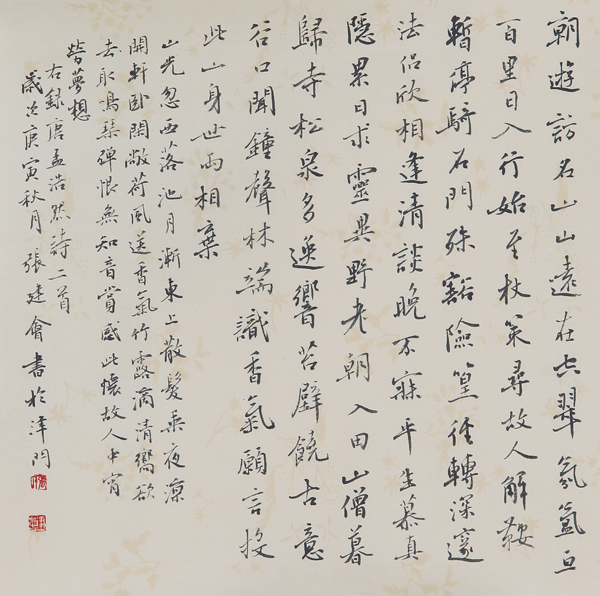 朝遊訪名山山遠在空翠氛氳亘
百里日入行始至杖策尋故人解鞍
暫亭騎石門殊豁險篁徑轉深邃
法侶欣相逢清談晚不寐平生慕真
隱累日求靈異野老朝入田山僧暮
歸寺松泉多逸響苔壁饒古意
谷口聞鐘聲林端識香氣願言投
此山身世兩相棄
山光忽西落池月漸東上散髮乘夜涼
開軒臥閑敞荷風送香氣竹露滴清響欲
去取鳴琴彈恨無知音賞感此懷故人中宵
勞夢想
右錄唐孟浩然詩二首
歲次庚寅秋月張建會書於津門